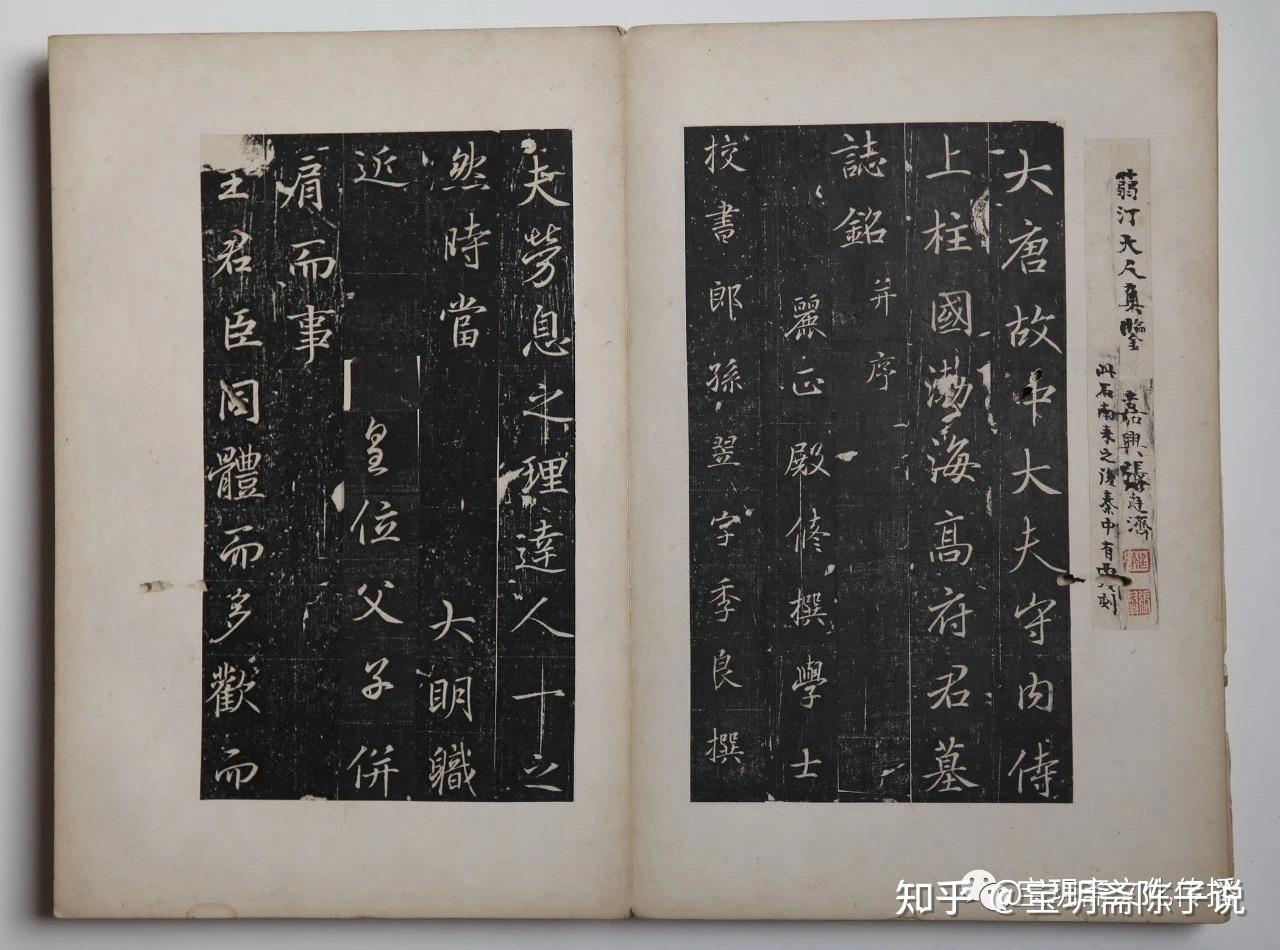 蒻汀大人真鑒 嘉興張廷濟
此石南來之後秦中有刻
大唐故中大夫守内侍
上柱國渤海高府君墓
誌銘并序
麗正殿修撰學士
校書郎孫翌字季良撰
夫勞息之理達人十之
然時當 大明職
近 皇位父子併
肩而事
主君臣同體而多歡而
知乎 @宝玥斋陈子说